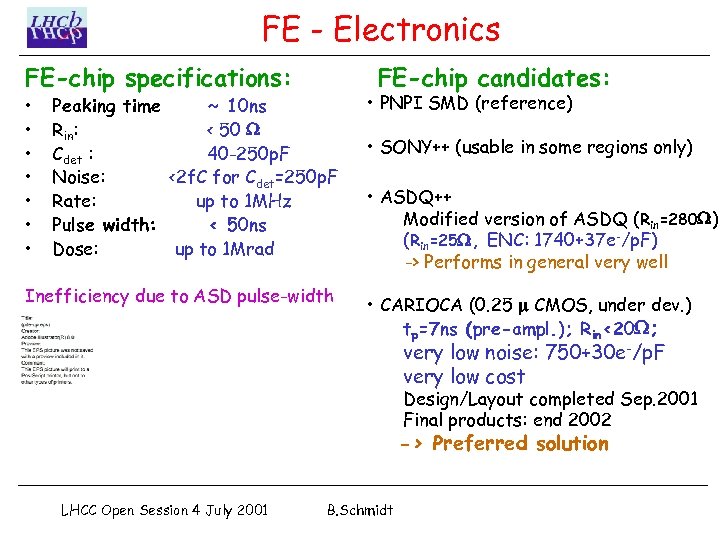 LHCb
LHCp
FE - Electronics
FE-chip specifications:
• Peaking time ~ 10ns
• Rin: < 50 Ω
• Cdet : 40-250p.F
• Noise: <2f.C for Cdet=250p.F
• Rate: up to 1MHz
• Pulse width: < 50ns
• Dose: up to 1Mrad
Inefficiency due to ASD pulse-width
Title:
Creator:
Preview:
This EPS picture was not saved
with a preview included in it.
Comment:
This EPS picture will print to a
PostScript printer, but not to
other types of printers.
FE-chip candidates:
• PNPI SMD (reference)
• SONY++ (usable in some regions only)
• ASDQ++
Modified version of ASDQ (Rin=280Ω)
(Rin=25Ω, ENC: 1740+37e-/p.F)
-> Performs in general very well
• CARIOCA (0.25 μ CMOS, under dev.)
tp=7ns (pre-ampl.); Rin<20Ω;
very low noise: 750+30e-/p.F
very low cost
Design/Layout completed Sep.2001
Final products: end 2002
-> Preferred solution
LHCC Open Session 4 July 2001
B.Schmidt